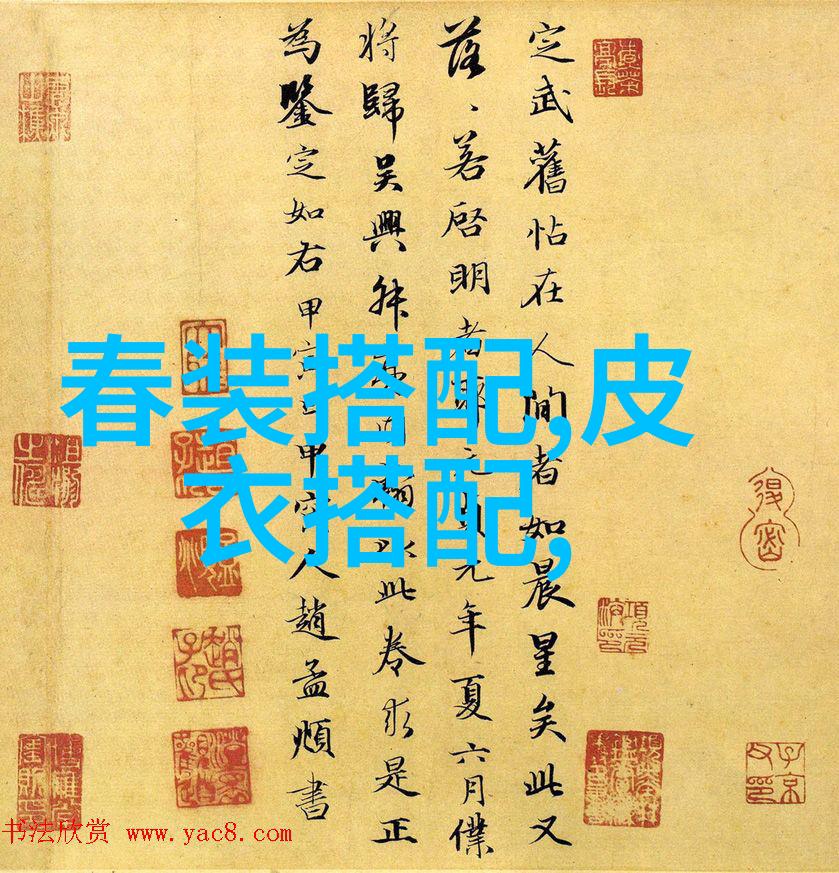 定武舊帖在人間者如晨星矣此又
落、若啓明者耶元貞元年夏六月僕
將歸吳興內翰以此卷求是正
為鑒定如右甲寅人趙孟頫書
春装搭配,皮
衣搭配,
子京父印
书法欣赏 www.yac8.com